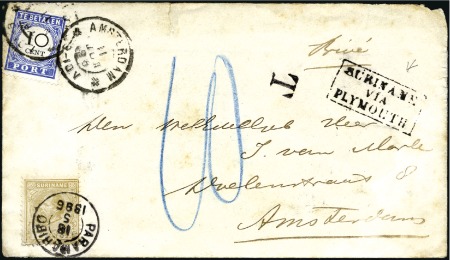 TE BETALEN
10
CENT
PORT
AMSTERDAM
Privé
T
SURINAME
VIA
PLYMOUTH
10
Den Weledelgeb Heer
J. van Marle
8
Amsterdam
SURINAME
PARAMARIBO
18
5
1886